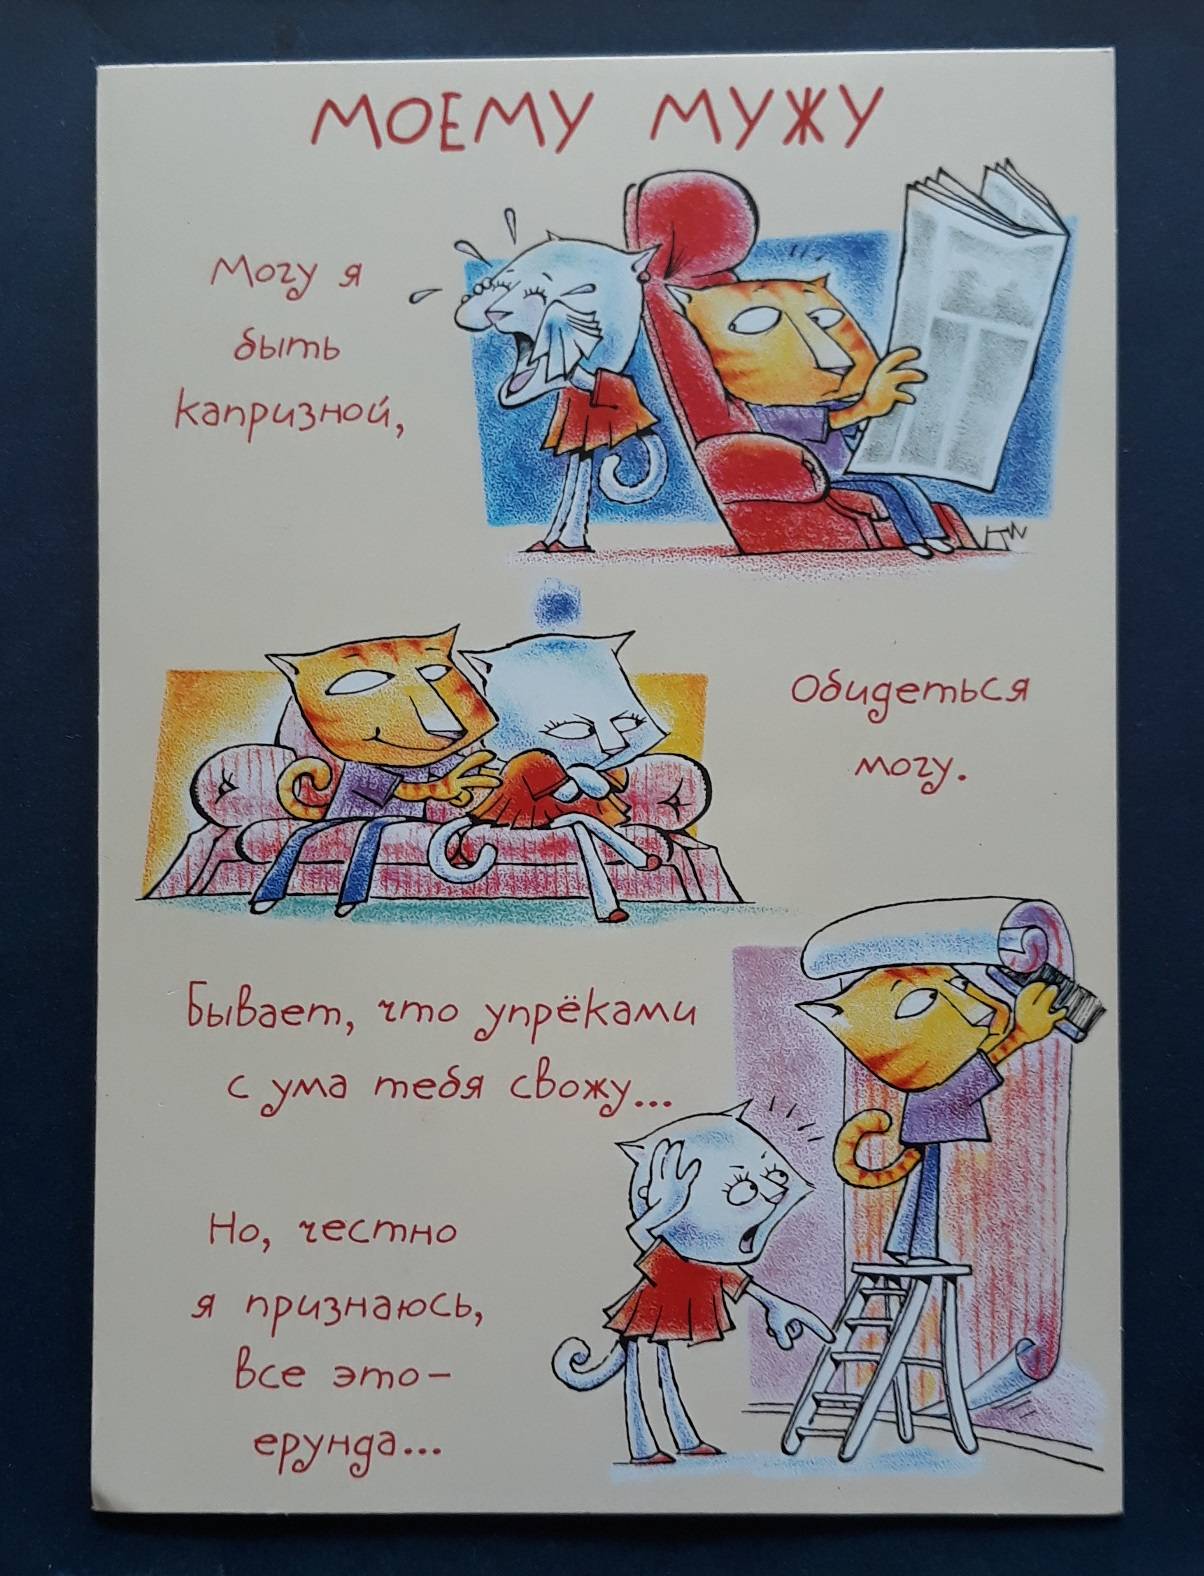 МОЕМУ МУЖУ
Могу я
быть
капризной,
Обидеться
могу.
Бывает, что упрёками
с ума тебя свожу...
Но, честно
я признаюсь,
все это-
ерунда...